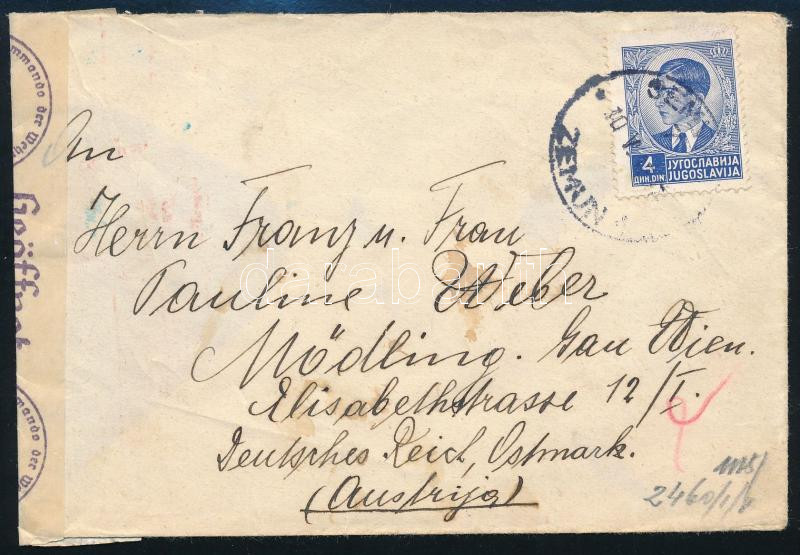 An
Herrn Franz u. Frau
Pauline Weber
Mödling. Gau Wien.
Elisabethstrasse 12/I.
Deutsches Reich, Ostmark.
(Austrija)
2460/1/
4
ДИН. DIN.
ЈУГОСЛАВИЈА
JUGOSLAVIJA
ZEMUN
10 V
Geöffnet
ommando der Weh
mmando der W
darabanth